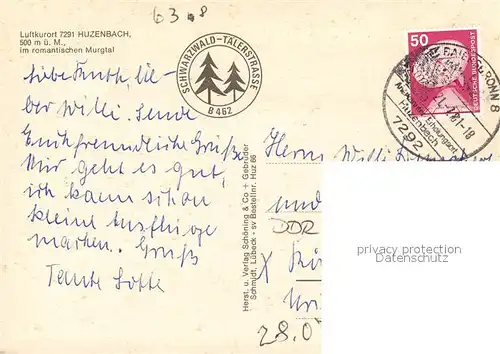 63.8
Luftkurort 7291 HUZENBACH,
500 m ü. M.,
im romantischen Murgtal
SCHWARZWALD-TÄLERSTRASSE
B 462
50
DEUTSCHE BUNDESPOST
BAIERSBRONN 8
Huzenbach
7292
-18
Liebe
ber Willi. Sende
Euch freundliche Grüße
Mir geht es gut,
ich kann schon
kleine Ausflüge
machen. Gruß
Tante Lotte
Herrn Willi
und
DDR
X
28.0
Herst. u. Verlag Schöning & Co + Gebrüder
Schmidt, Lübeck - sv Bestellnr. Huz 86
privacy protection
Datenschutz